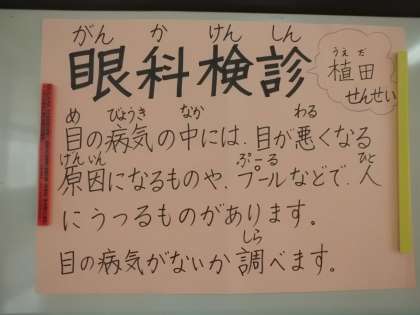 がん か けん しん
眼科検診
うえ だ
植田
せんせい
め びょうき なか わる
目の病気の中には、目が悪くなる
げんいん ぷーる ひと
原因になるものや、プールなどで、人
にうつるものがあります。
しら
目の病気がないか調べます。